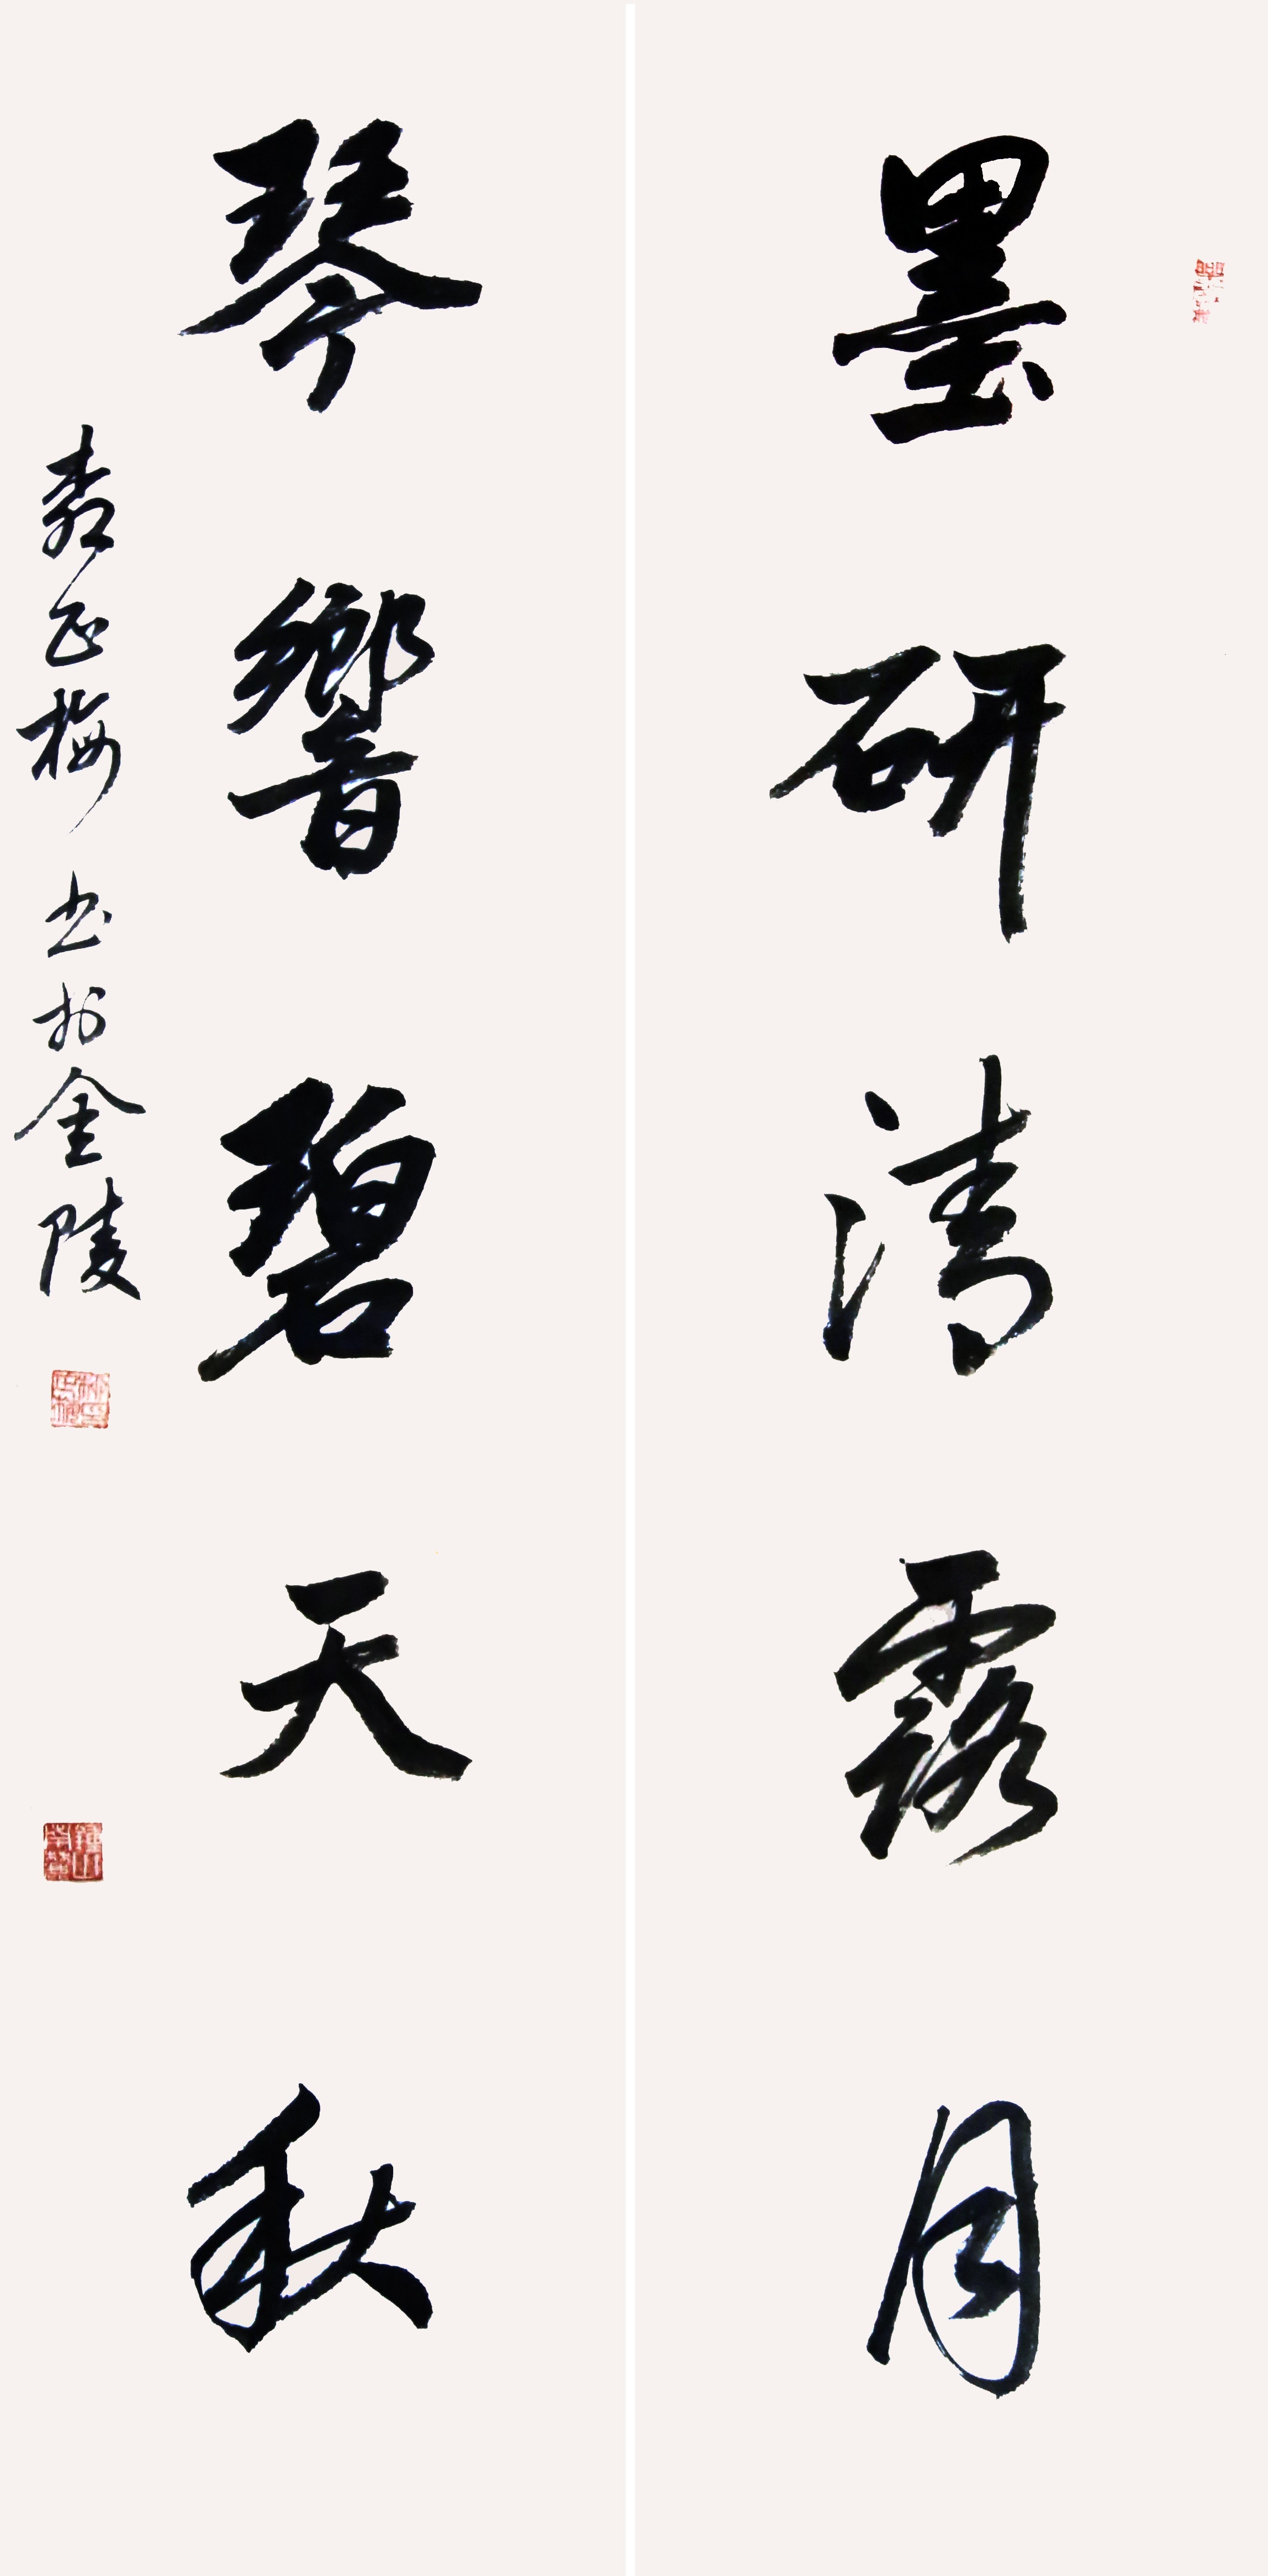 墨研清露月
琴響碧天秋
正梅书於金陵